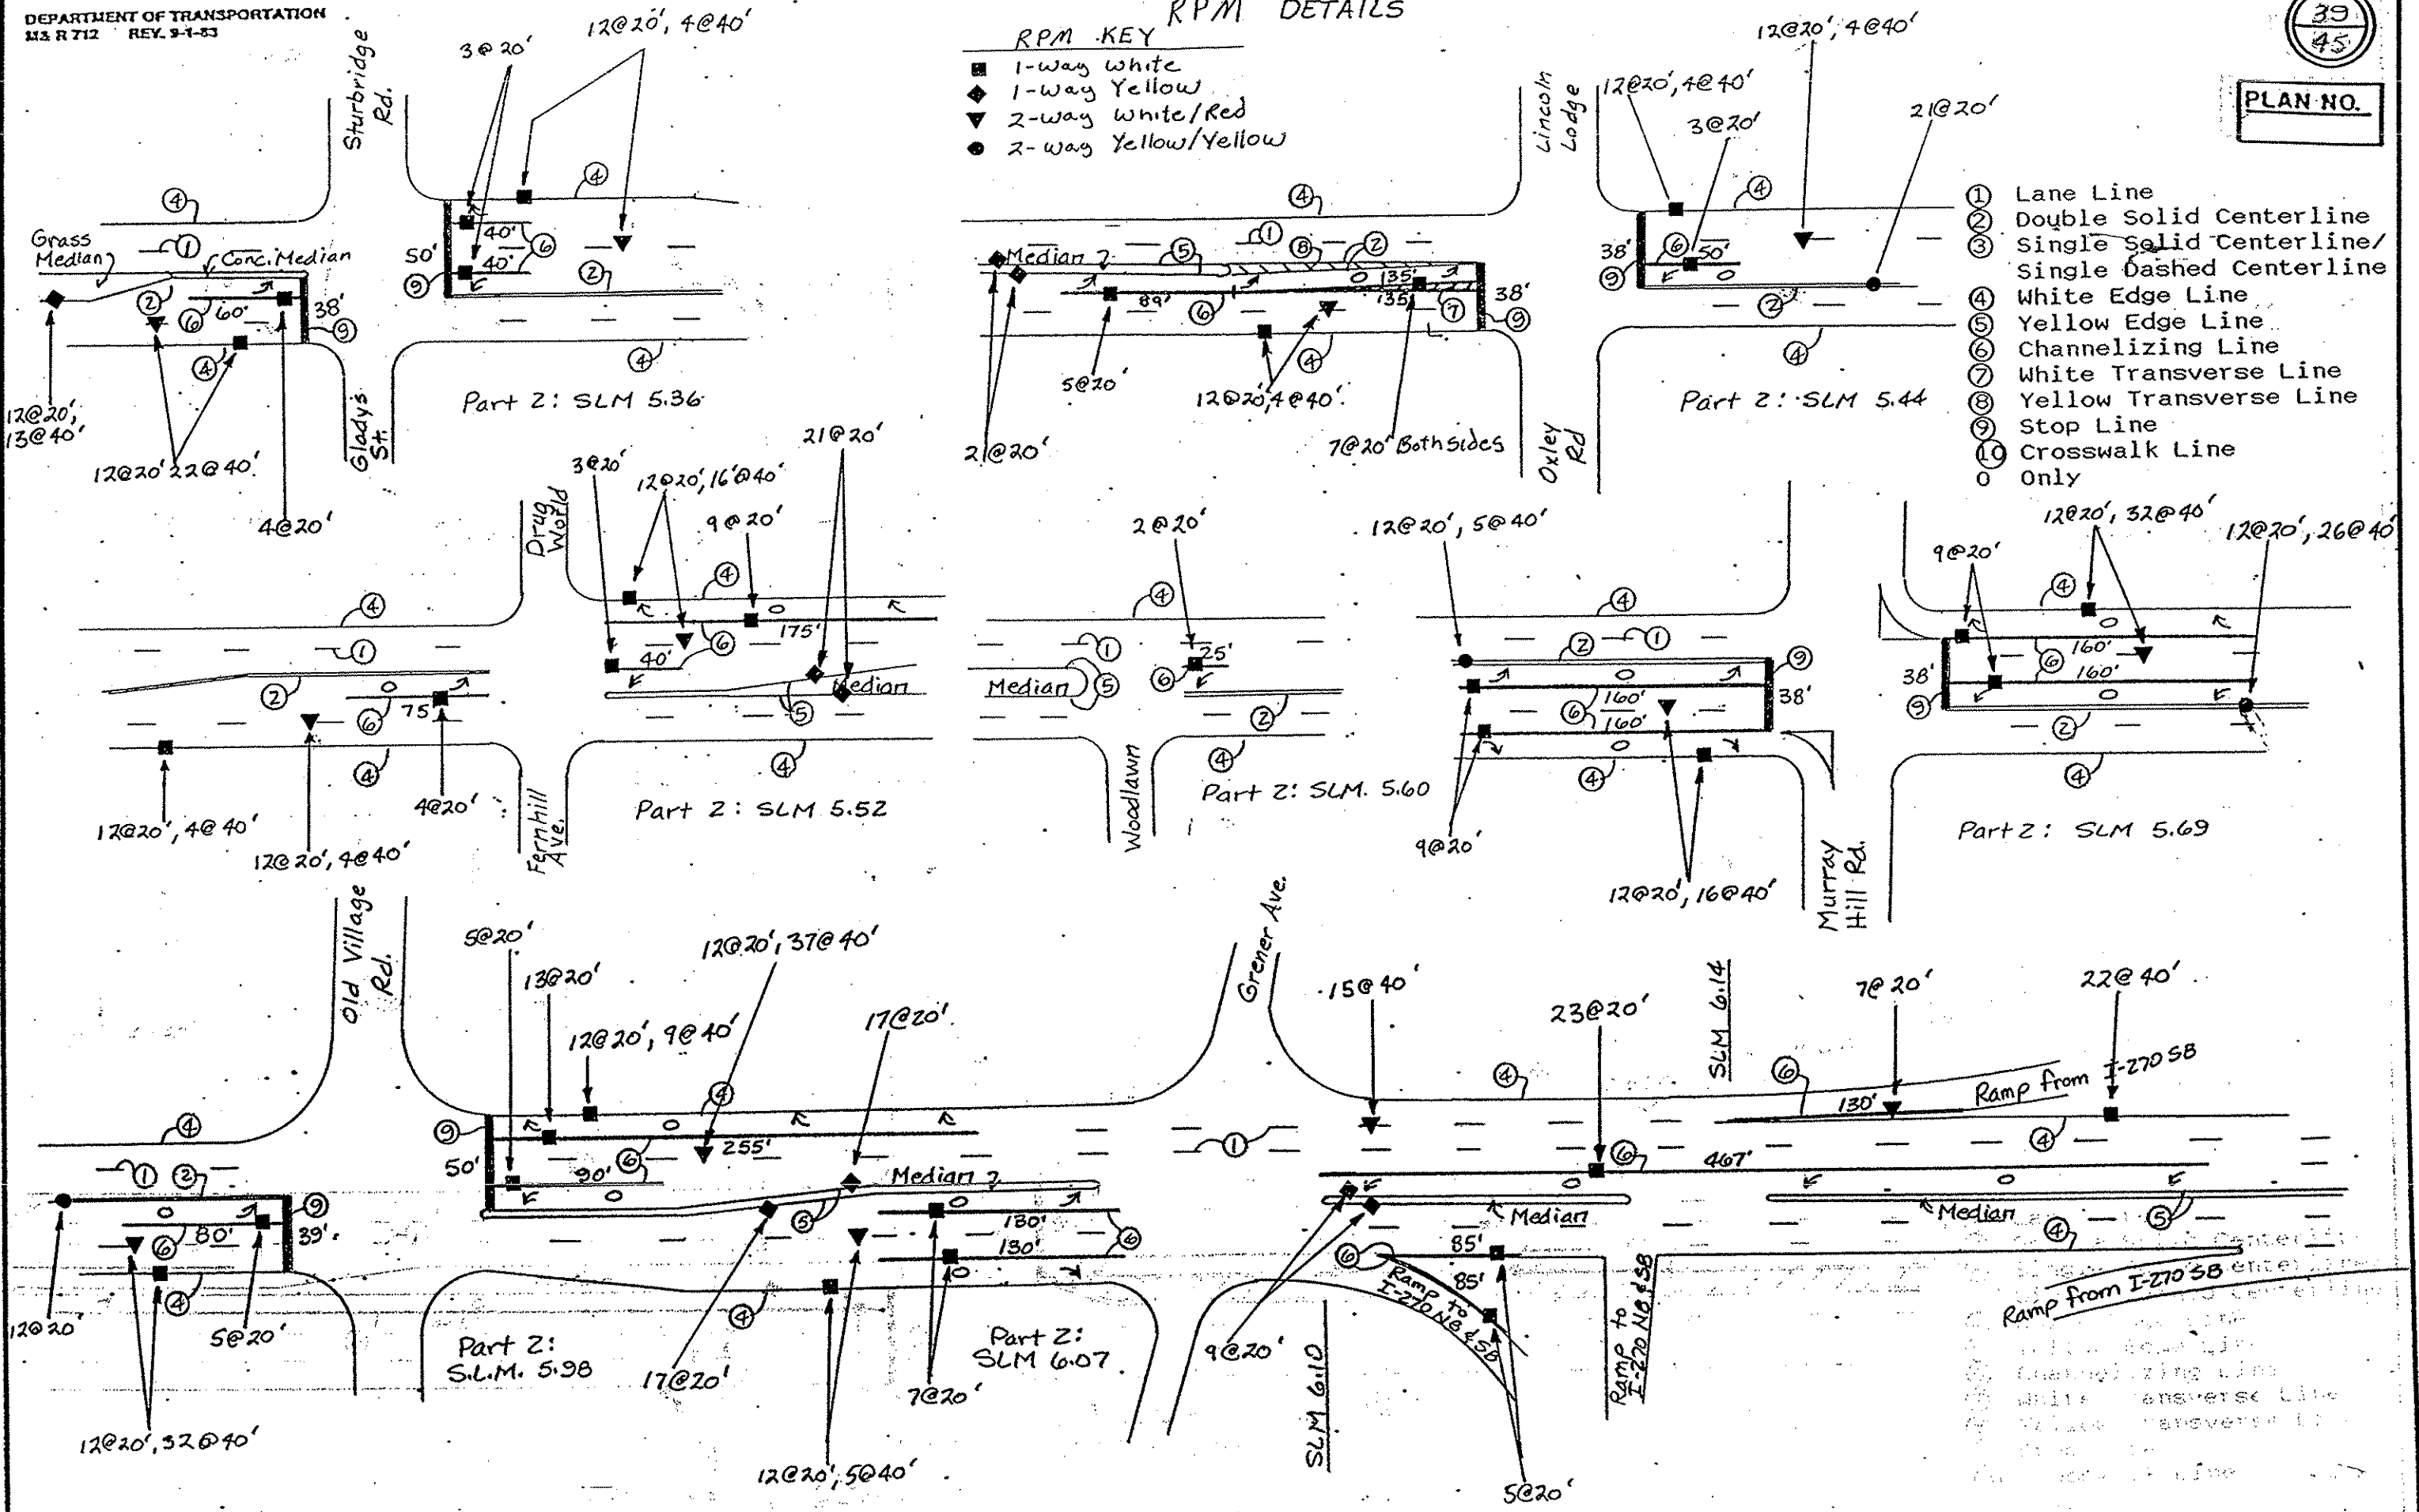 DEPARTMENT OF TRANSPORTATION
M& R 712 REV. 9-1-83
RPM DETAILS
39
45
PLAN NO.
RPM KEY
■ 1-way White
◆ 1-way Yellow
▼ 2-way White/Red
● 2-way Yellow/Yellow
① Lane Line
② Double Solid Centerline
③ Single Solid Centerline/
Single Dashed Centerline
④ White Edge Line
⑤ Yellow Edge Line
⑥ Channelizing Line
⑦ White Transverse Line
⑧ Yellow Transverse Line
⑨ Stop Line
⑩ Crosswalk Line
O Only
Sturbridge
Rd.
3@20'
12@20', 4@40'
④
④
Grass
Median
①
Conc. Median
②
⑥
60'
38'
⑨
④
50'
⑨
40'
40'
⑥
②
④
12@20',
13@40'
12@20' 22@40'
4@20'
Gladys
St.
Part 2: SLM 5.36
Lincoln
Lodge
12@20', 4@40'
12@20', 4@40'
3@20'
21@20'
④
①
Median
⑤
⑧
②
O
135'
135'
89'
⑥
⑦
38'
⑨
④
5@20'
12@20', 4@40'
21@20'
7@20' Both sides
④
38'
⑨
⑥
50'
O
②
④
Oxley
Rd
Part 2: SLM 5.44
Drug
World
3@20'
12@20', 16@40'
9@20'
21@20'
④
①
②
O
⑥
75'
④
④
O
175'
⑥
40'
Median
⑤
④
12@20', 4@40'
12@20', 4@40'
4@20'
Fernhill
Ave.
Part 2: SLM 5.52
2@20'
④
①
Median
⑤
25'
⑥
②
④
Woodlawn
Part 2: SLM. 5.60
12@20', 5@40'
④
②
①
⑨
O
160'
⑥
160'
38'
O
④
9@20'
12@20', 16@40'
9@20'
12@20', 32@40'
12@20', 26@40'
④
O
160'
⑥
160'
38'
⑨
O
②
④
Murray
Hill Rd.
Part 2: SLM 5.69
Old Village
Rd.
5@20'
13@20'
12@20', 9@40'
12@20', 37@40'
17@20'
④
①
②
⑨
O
80'
⑥
39'
④
12@20'
5@20'
12@20', 32@40'
Part 2:
S.L.M. 5.98
⑨
50'
④
O
⑥
255'
90'
O
Median
⑤
O
130'
130'
⑥
O
④
17@20'
7@20'
12@20', 5@40'
Part 2:
SLM 6.07
Grener Ave.
15@40'
23@20'
SLM 6.14
7@20'
22@40'
①
④
⑥
130'
Ramp from I-270 SB
④
O
⑥
467'
O
Median
Median
⑤
④
⑥
85'
85'
Ramp to
I-270 NB & SB
Ramp to
I-270 NB & SB
Ramp from I-270 SB
9@20'
SLM 6.10
5@20'